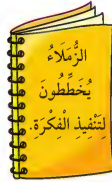 الزُّمَلَاءُ
يُخَطِّطُونَ
لِتَنْفِيذِ الْفِكْرَةِ.